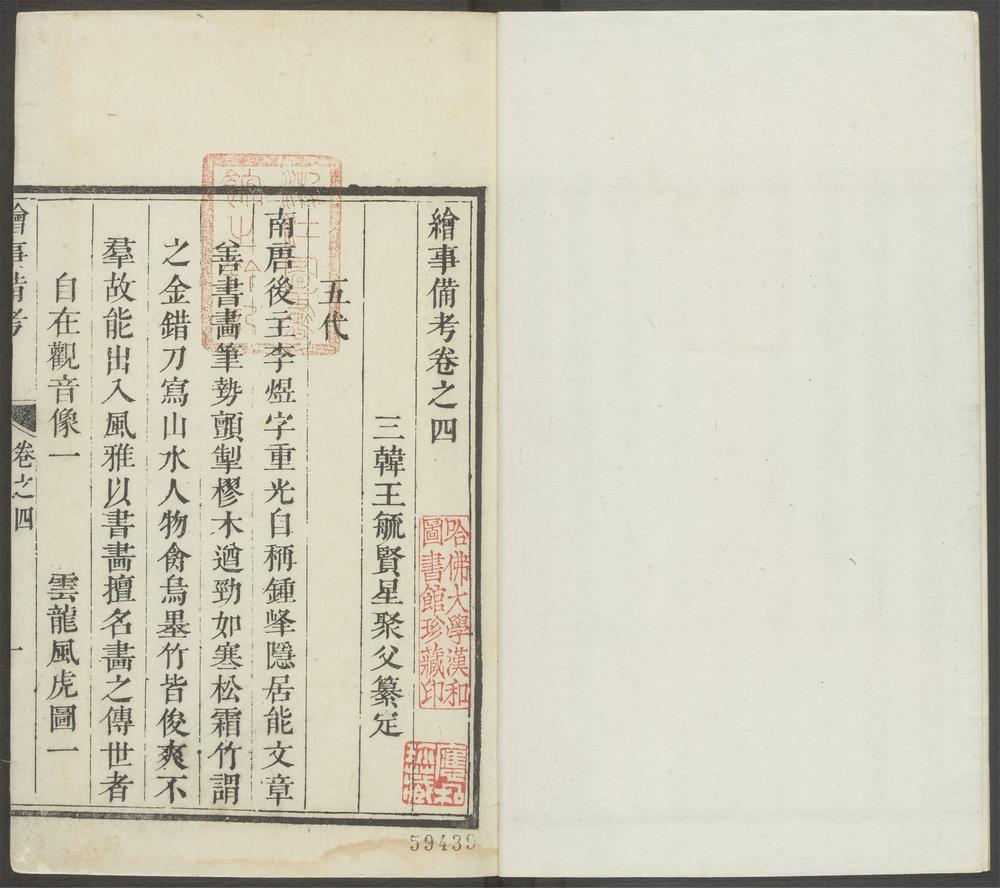 繪事備考卷之四
三韓王毓賢星聚父纂定
五代
南唐後主李煜字重光自稱鍾峰隱居能文章
善書畵筆勢顫掣樛木遒勁如寒松霜竹謂
之金錯刀寫山水人物禽鳥墨竹皆俊爽不
羣故能出入風雅以書畵擅名畵之傳世者
自在觀音像一 雲龍風虎圖一
繪事備考 卷之四 一
哈佛大學漢和
圖書館珍藏印
59439